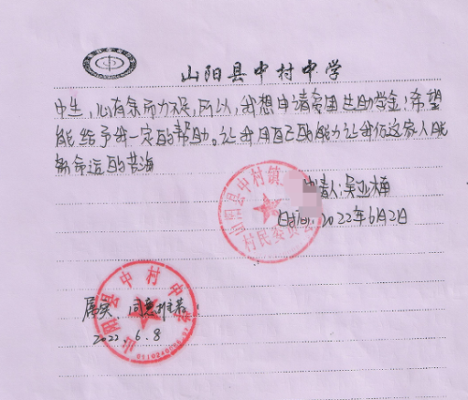 山阳县中村中学
中生，心有余而力不足，所以，我想申请贫困生助学金！希望
能给予我一定的帮助。让我用自己的能力让我们这家人脱
离命运的苦海
申请人：吴亚楠
时间：2022年6月2日
山阳县中村
村民委员会
山阳县中村中学
属实，同意推荐
2022.6.8